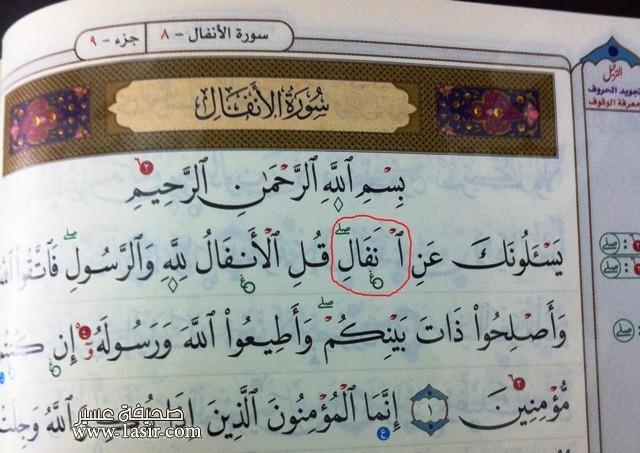 سورة الأنفال - ٨
جزء - ٩
الترتيل
تجويد الحروف
معرفة الوقوف
سُورَةُ الأَنفَال
بِسْمِ ٱللَّهِ ٱلرَّحْمَٰنِ ٱلرَّحِيمِ
يَسْـَٔلُونَكَ عَنِ ٱ نفَالِ ۖ قُلِ ٱلْأَنفَالُ لِلَّهِ وَٱلرَّسُولِ ۖ فَٱتَّقُوا۟
وَأَصْلِحُوا۟ ذَاتَ بَيْنِكُمْ ۖ وَأَطِيعُوا۟ ٱللَّهَ وَرَسُولَهُۥٓ إِن
مُّؤْمِنِينَ ١ إِنَّمَا ٱلْمُؤْمِنُونَ ٱلَّذِينَ إِذَا ذُكِرَ ٱللَّهُ وَجِلَتْ
صلى
صلى
صلى
صحيفة عسير
www.1asir.com